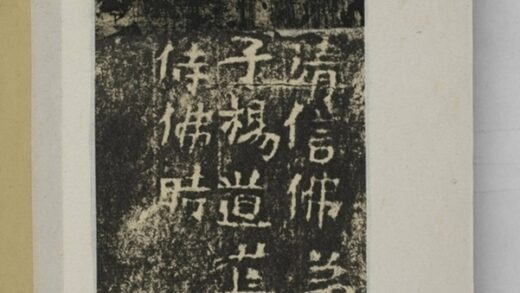 清信佛弟
子楊道
侍佛時